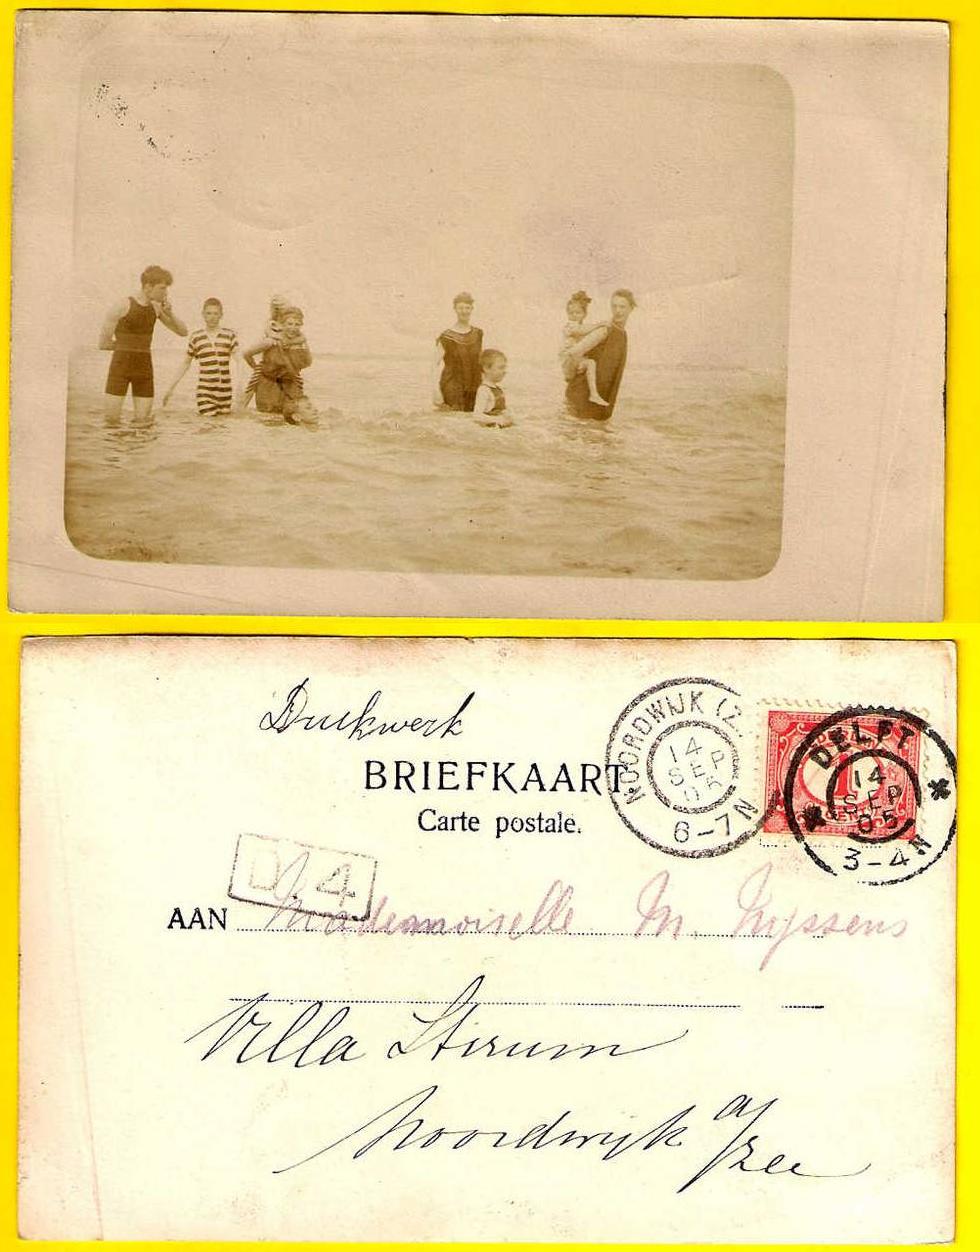 Drukwerk
BRIEFKAART.
Carte postale.
NOORDWIJK (Z
14
SEP
05
6-7N
DELFT
14
SEP
05
3-4N
1
CENT
D 4
AAN Mademoiselle M. Nyssens
Villa Stirum
Noordwijk a/Zee